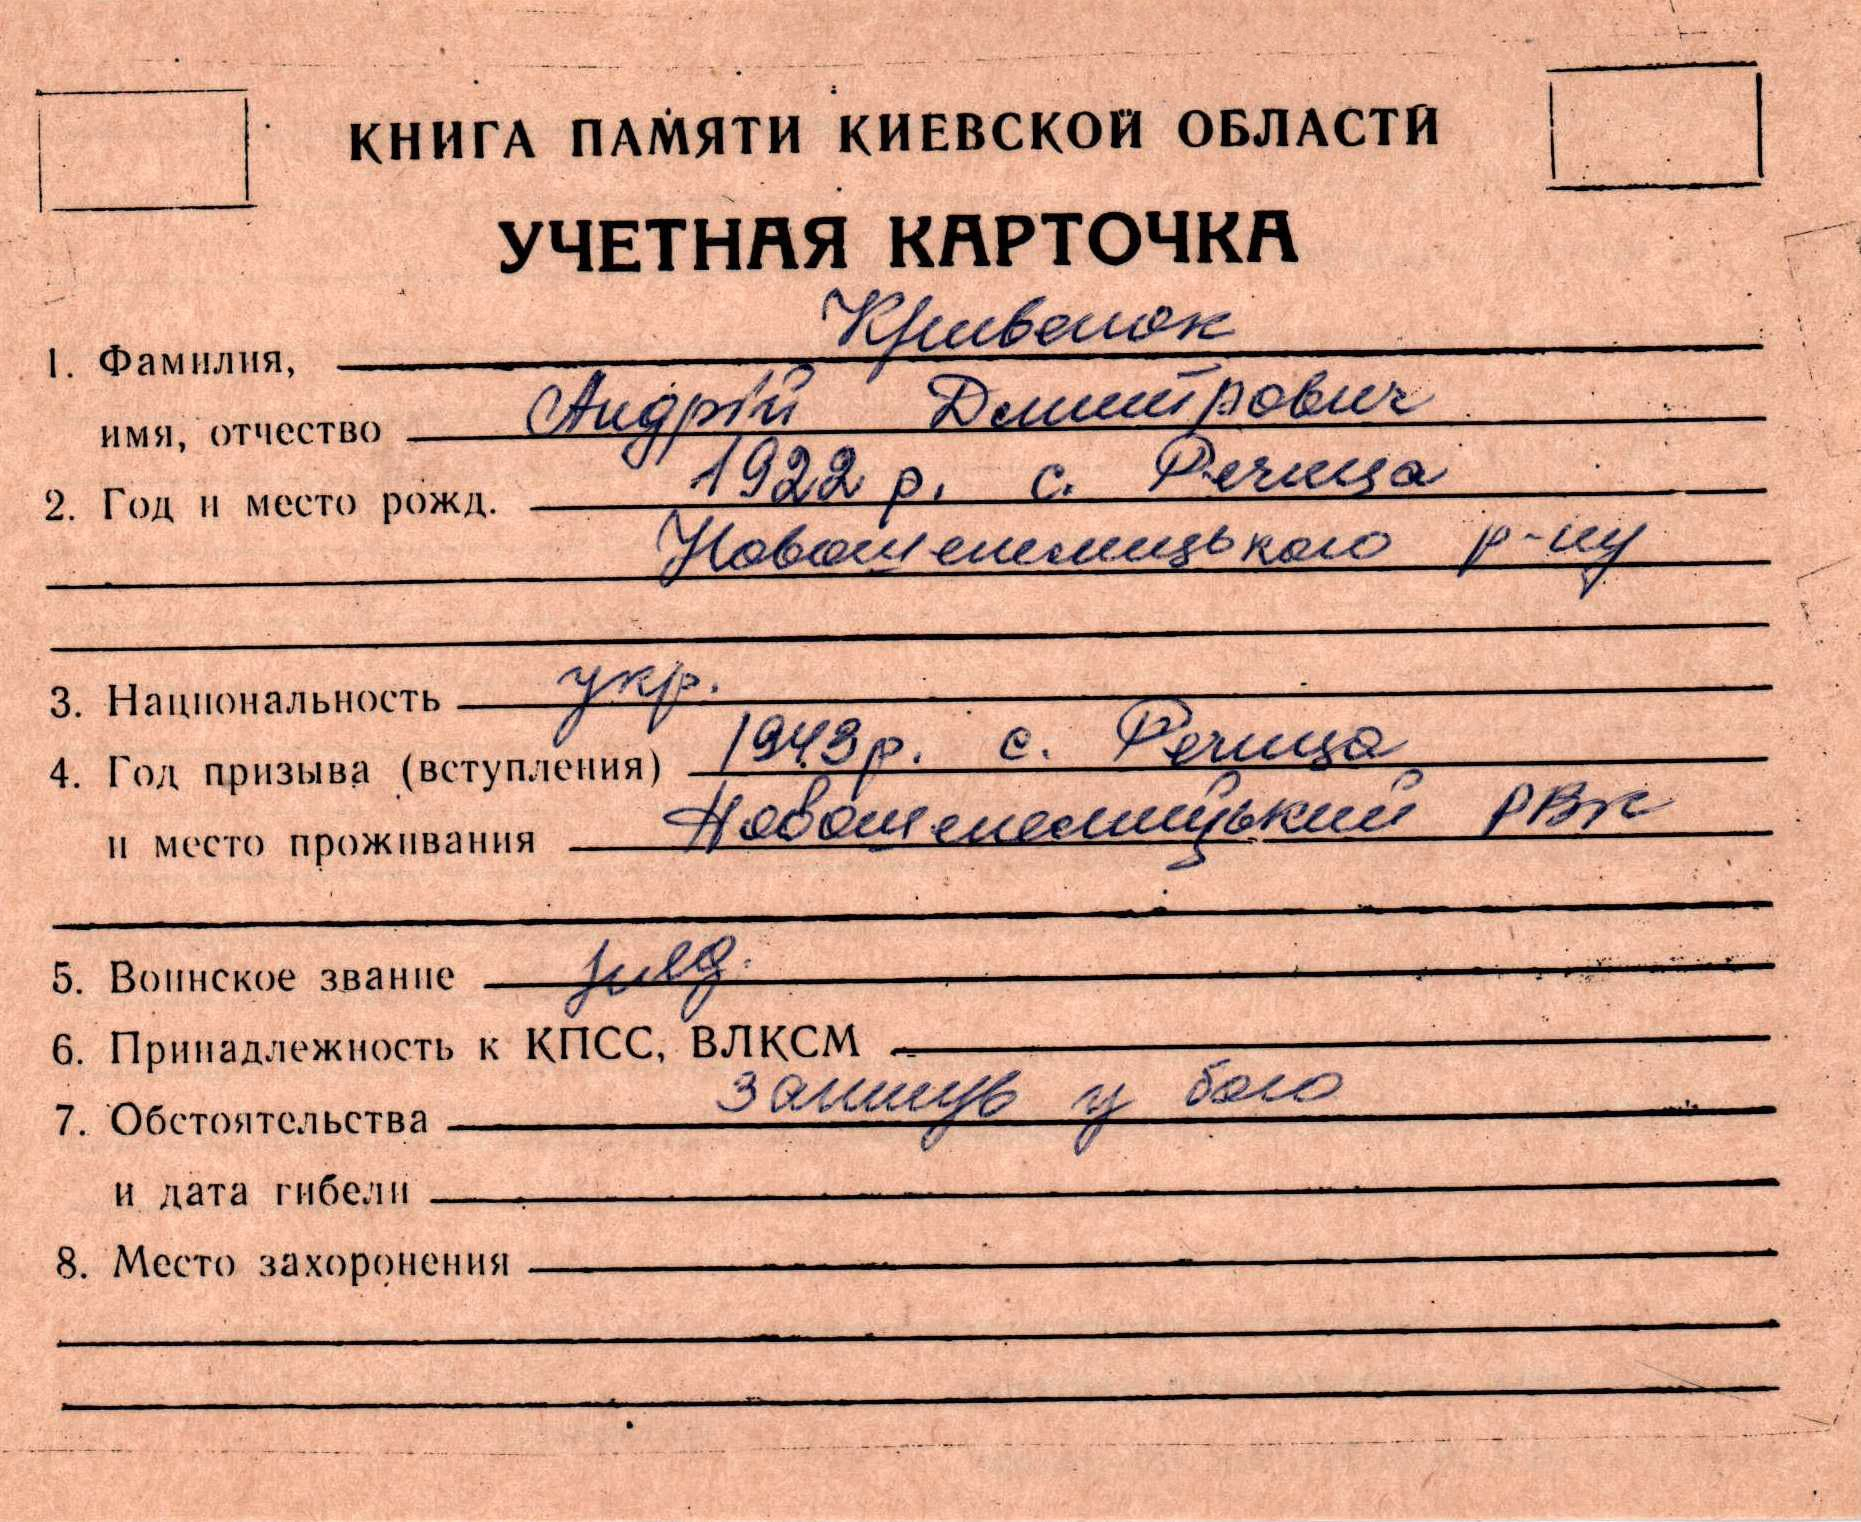 КНИГА ПАМЯТИ КИЕВСКОЙ ОБЛАСТИ
УЧЕТНАЯ КАРТОЧКА
1. Фамилия, Кривенок
имя, отчество Андрій Дмитрович
2. Год и место рожд. 1922 р. с. Речица
Новошепелицького р-ну
3. Национальность укр.
4. Год призыва (вступления) 1943 р. с. Речица
и место проживания Новошепелицький РВК
5. Воинское звание ряд.
6. Принадлежность к КПСС, ВЛКСМ
7. Обстоятельства загинув у бою
и дата гибели
8. Место захоронения